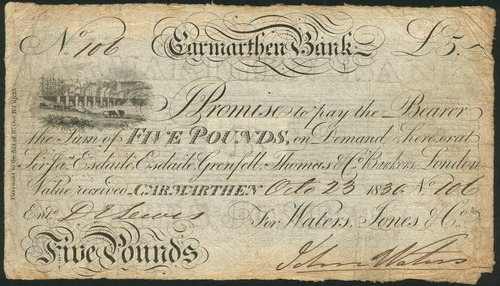 No. 106 Carmarthen Bank £5.-
I Promise to pay the Bearer
the Sum of FIVE POUNDS, on Demand here, or at
Sir Jas. Esdaile, Esdaile, Grenfell, Thomas & Co. Bankers, London
Value received, CARMARTHEN Octo 23 1830 No 106
Entd. D E Lewis For Waters, Jones & Co.
Five Pounds John Waters